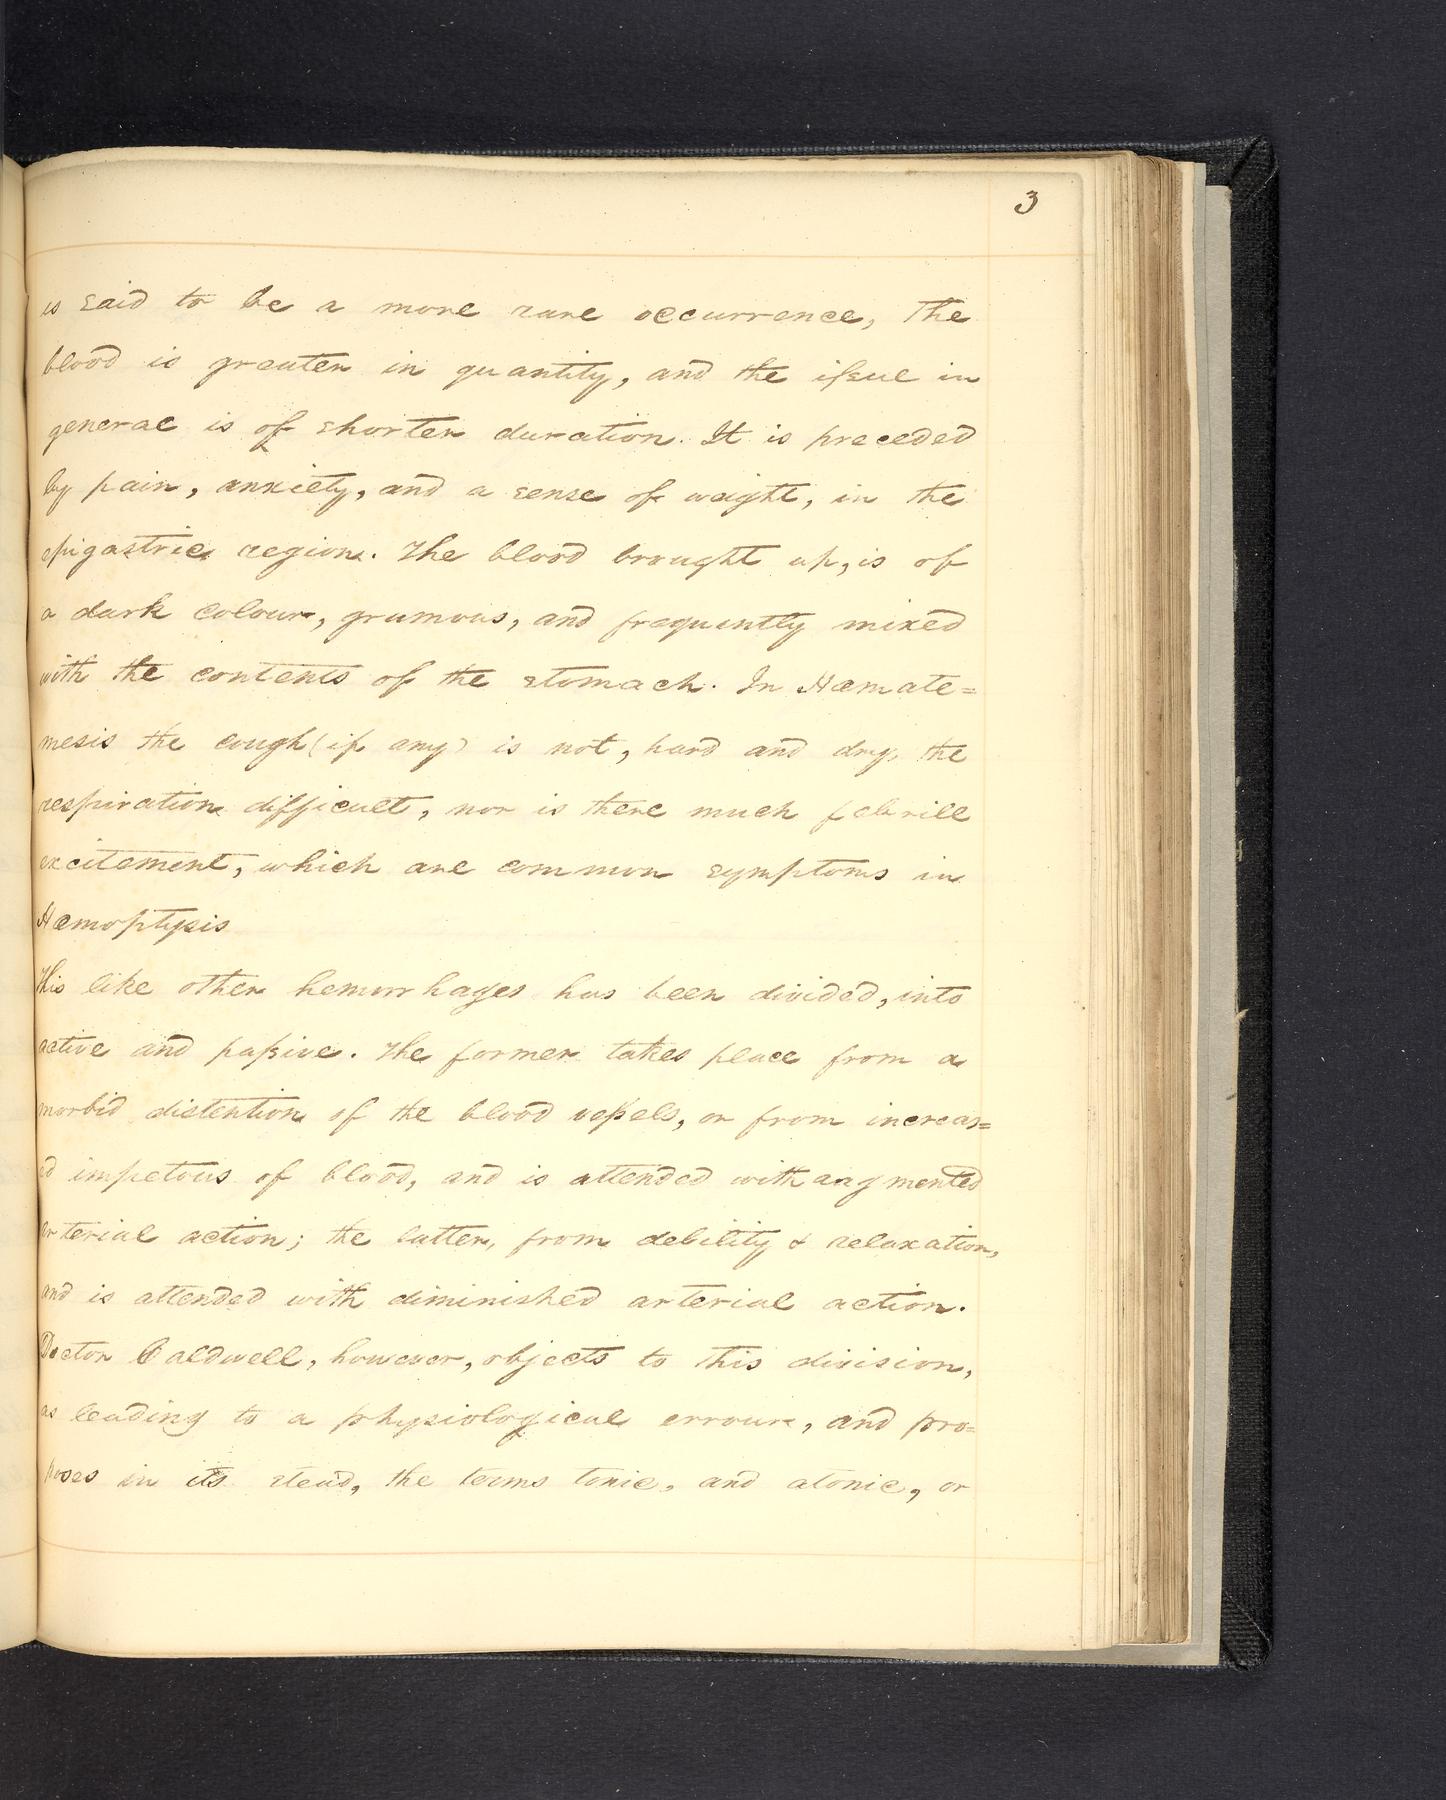 3
is said to be a more rare occurrence, The
blood is greater in quantity, and the issue in
general is of shorter duration. It is preceded
by pain, anxiety, and a sense of weight, in the
epigastric region. The blood brought up, is of
a dark colour, grumous, and frequently mixed
with the contents of the stomach. In Hæmate=
mesis the cough (if any) is not, hard and dry, the
respiration difficult, nor is there much febrill
excitement, which are common symptoms in
Hæmoptysis
This like other hemorrhages has been divided, into
active and passive. The former takes place from a
morbid distention of the blood vessels, or from increas=
ed impetous of blood, and is attended with augmented
arterial action; the latter, from debility & relaxation,
and is attended with diminished arterial action.
Doctor Caldwell, however, objects to this division,
as leading to a physiological errour, and pro=
poses in its stead, the terms tonic, and atonic, or